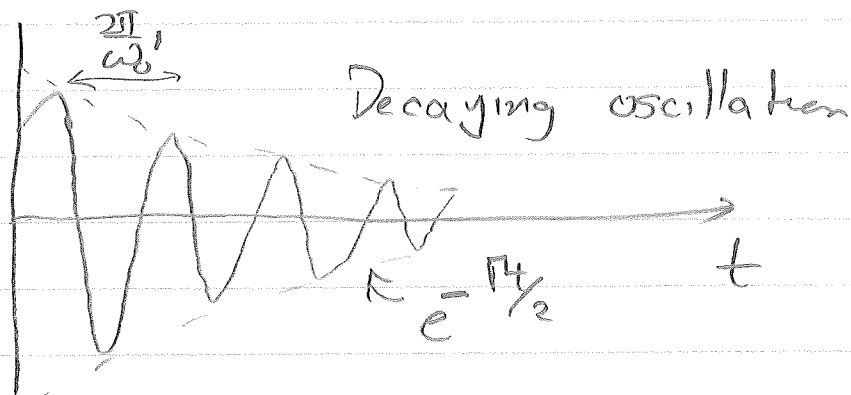 2π/ω₀'
Decaying oscillation
t
e^-Γt/2